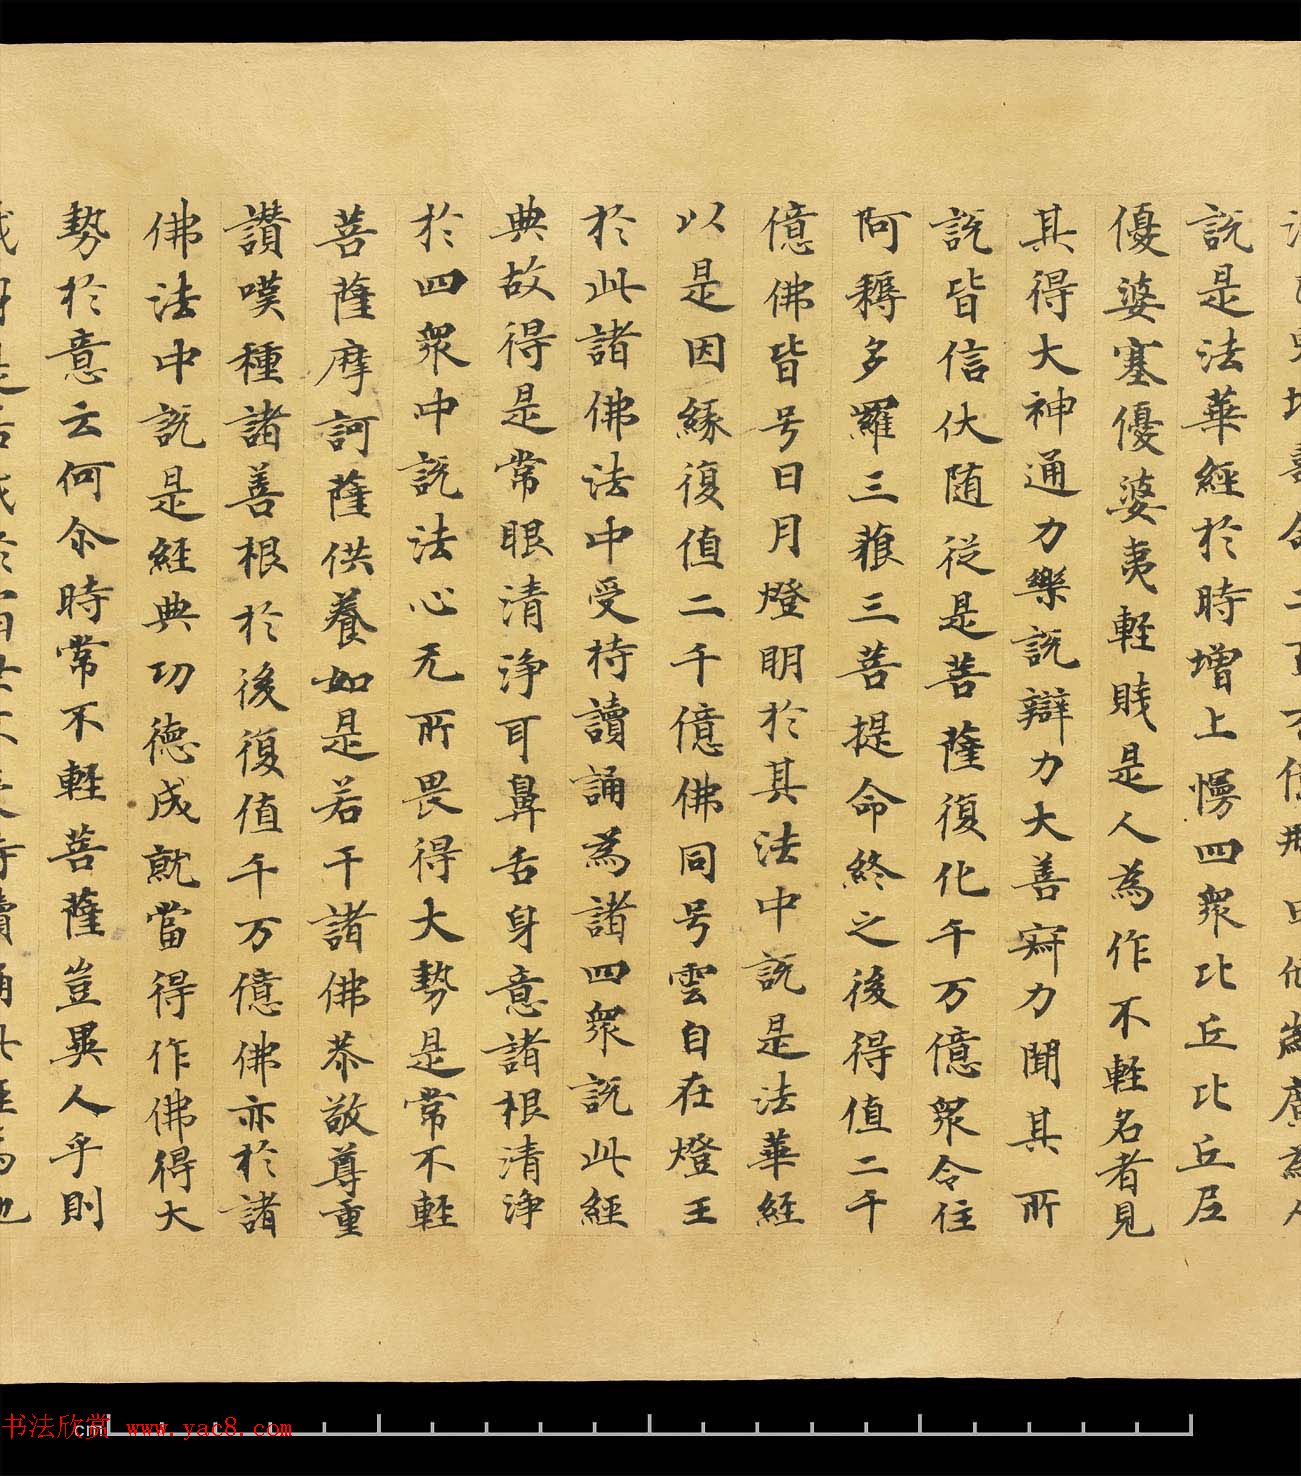 淨已更增壽命二百万億那由他歲廣為人
説是法華經於時增上慢四衆比丘比丘尼
優婆塞優婆夷輕賤是人為作不輕名者見
其得大神通力樂説辯力大善寂力聞其所
説皆信伏随從是菩薩復化千万億衆令住
阿耨多羅三藐三菩提命終之後得值二千
億佛皆号日月燈明於其法中説是法華經
以是因緣復值二千億佛同号雲自在燈王
於此諸佛法中受持讀誦為諸四衆説此經
典故得是常眼清淨耳鼻舌身意諸根清淨
於四衆中説法心无所畏得大勢是常不輕
菩薩摩訶薩供養如是若干諸佛恭敬尊重
讃嘆種諸善根於後復值千万億佛亦於諸
佛法中説是經典功德成就當得作佛得大
勢於意云何尒時常不輕菩薩豈異人乎則
我身是若我於宿世不受持讀誦此經為他
书法欣赏 www.yac8.com
cm